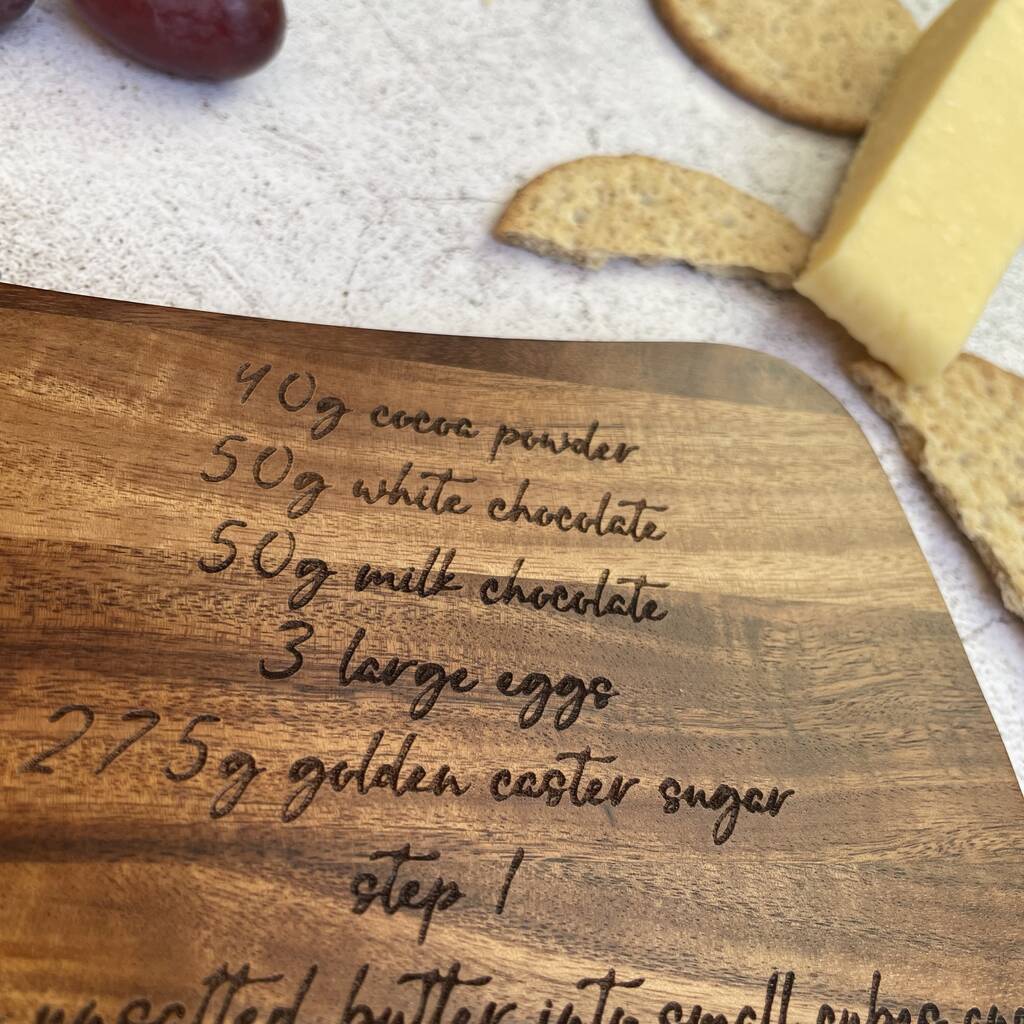 40g cocoa powder
50g white chocolate
50g milk chocolate
3 large eggs
275g golden caster sugar
step 1
unsalted butter into small cubes